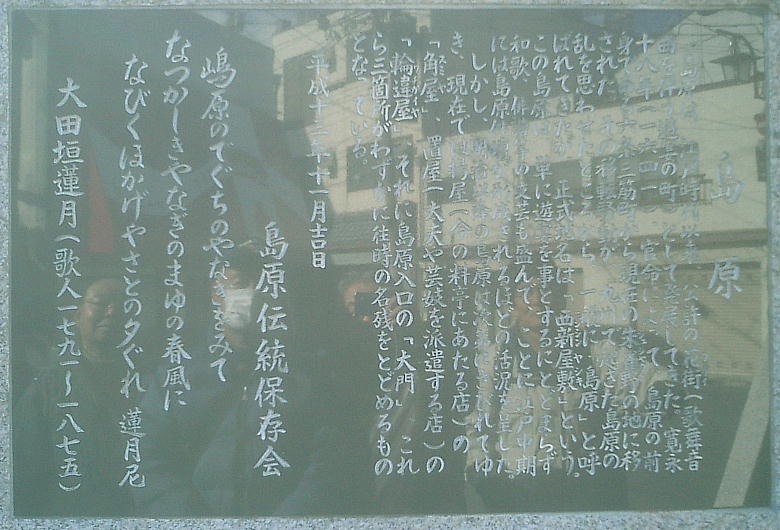 島原
島原は、江戸時代以来、公許の花街(歌舞音
曲を伴う遊宴の町)として発展してきた。寛永
十八年(一六四一)、官命によって島原の前
身である六条三筋町から現在の朱雀野の地に移
された。その移転騒動が、九州で起きた島原の
乱を思わせたところから、一般に「島原」と呼
ばれてきたが、正式地名は「西新屋敷」という。
この島原は、単に遊宴を事とするにとどまらず
和歌、俳諧等の文芸も盛んで、ことに江戸中期
には島原俳壇が形成されるほどの活況を呈した。
しかし、明治以降の島原は次第にさびれてゆ
き、現在では揚屋(今の料亭にあたる店)の
「角屋」、置屋(太夫や芸妓を派遣する店)の
「輪違屋」、それに島原入口の「大門」、これ
ら三箇所がわずかに往時の名残をとどめるもの
となっている。
平成十三年十一月吉日
島原伝統保存会
嶋原のでぐちのやなぎをみて
なつかしきやなぎのまゆの春風に
なびくほかげやさとの夕ぐれ 蓮月尼
大田垣蓮月(歌人一七九一〜一八七五)